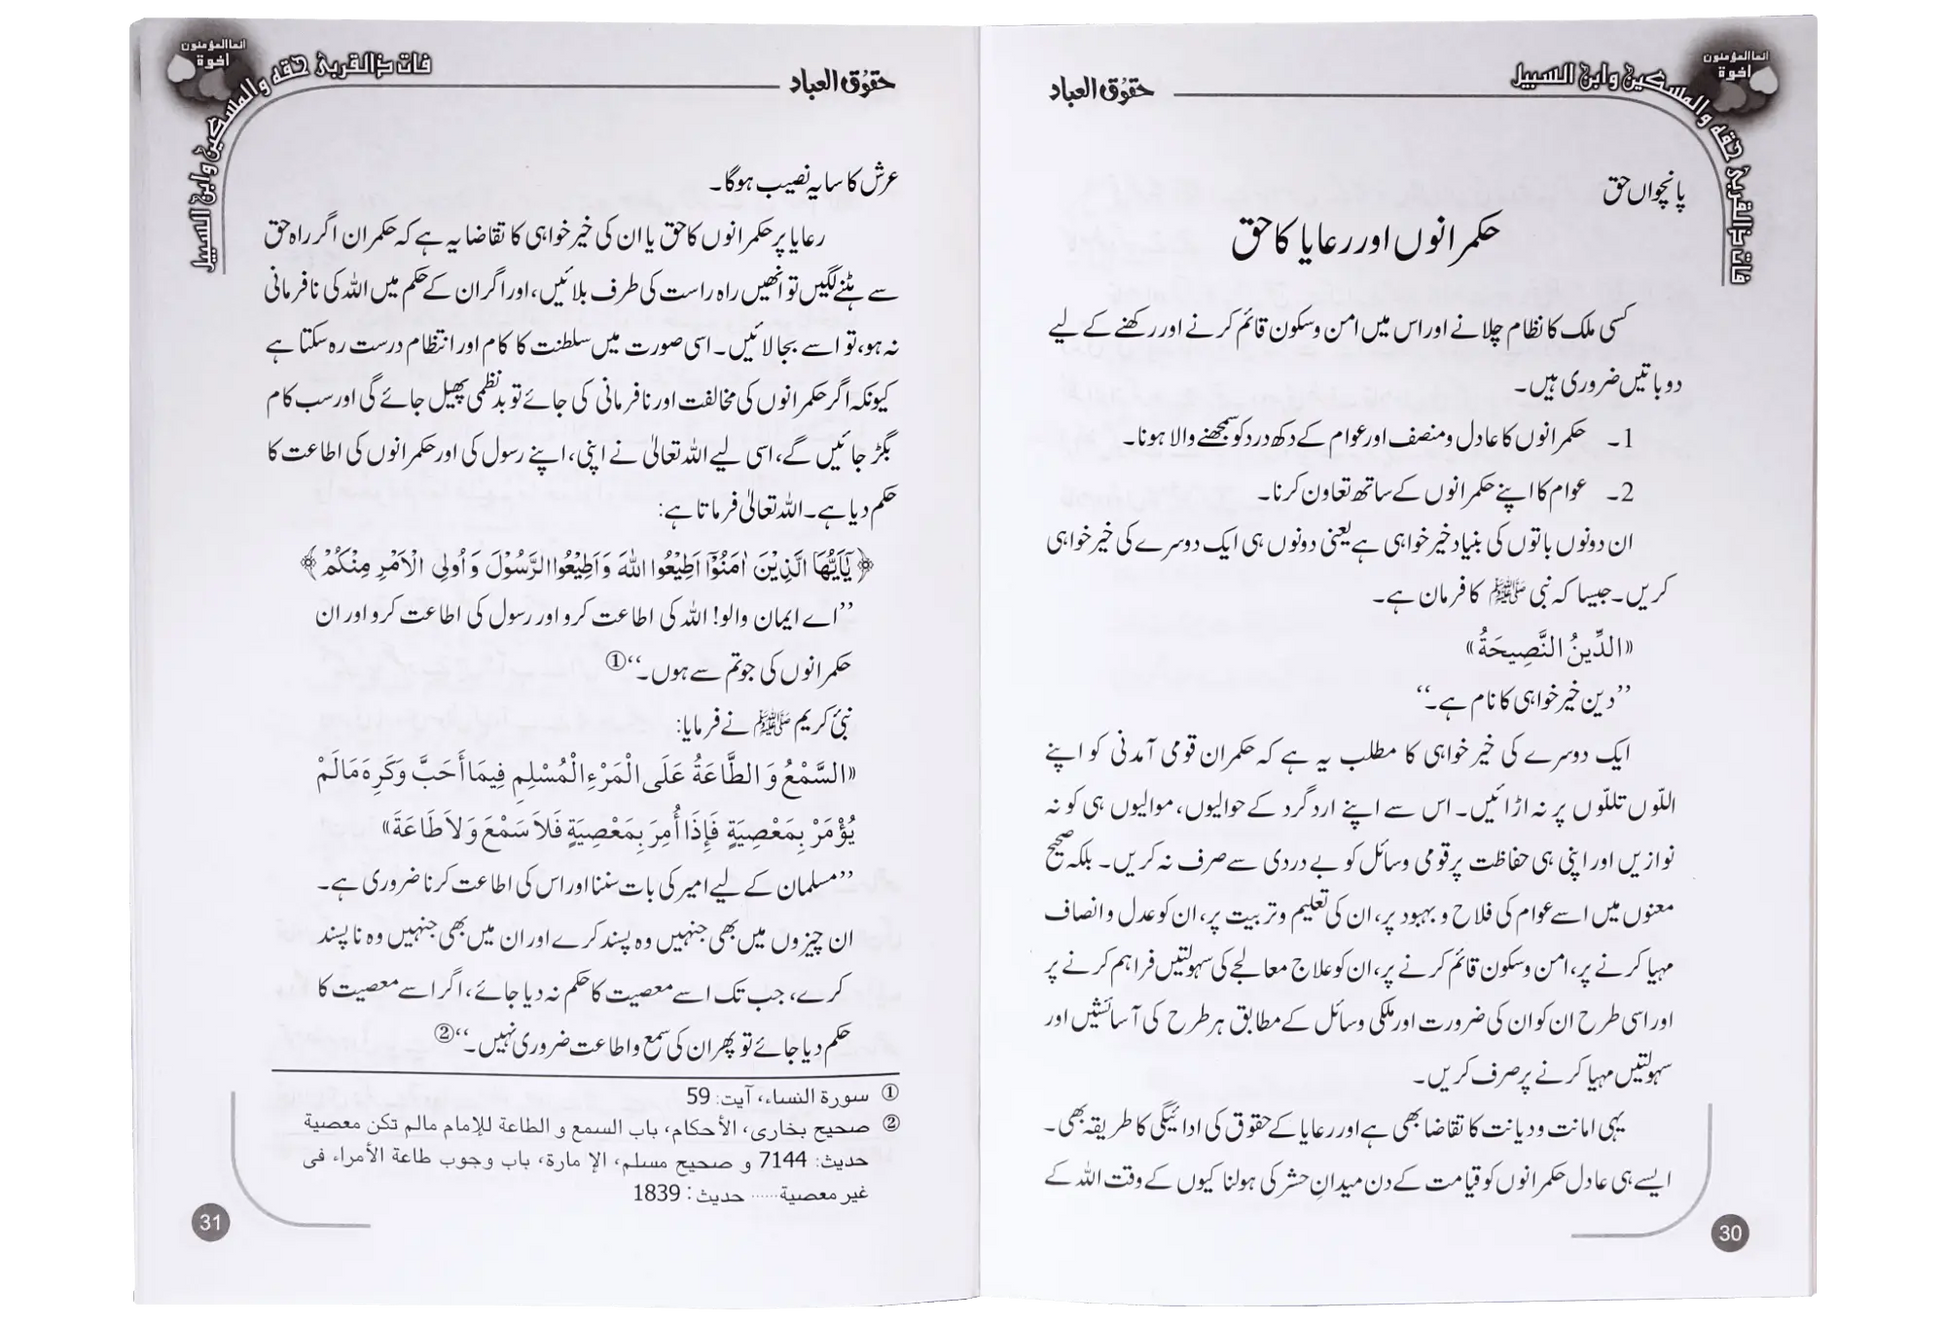 انما المؤمنون
اخوة
فات ذالقربیٰ حقه والمسكین وابن السبیل
حقوق العباد
پانچواں حق
حکمرانوں اور رعایا کا حق
کسی ملک کا نظام چلانے اور اس میں امن وسکون قائم کرنے اور رکھنے کے لیے
دو باتیں ضروری ہیں۔
1۔ حکمرانوں کا عادل ومنصف اور عوام کے دکھ درد کو سمجھنے والا ہونا۔
2۔ عوام کا اپنے حکمرانوں کے ساتھ تعاون کرنا۔
ان دونوں باتوں کی بنیاد خیر خواہی ہے یعنی دونوں ہی ایک دوسرے کی خیر خواہی
کریں۔ جیسا کہ نبی ﷺ کا فرمان ہے۔
«الدِّينُ النَّصِيحَةُ»
’’دین خیر خواہی کا نام ہے۔‘‘
ایک دوسرے کی خیر خواہی کا مطلب یہ ہے کہ حکمران قومی آمدنی کو اپنے
اللّوں تللّوں پر نہ اڑائیں۔ اس سے اپنے ارد گرد کے حوالیوں، موالیوں ہی کو نہ
نوازیں اور اپنی ہی حفاظت پر قومی وسائل کو بے دردی سے صرف نہ کریں۔ بلکہ صحیح
معنوں میں اسے عوام کی فلاح و بہبود پر، ان کی تعلیم وتربیت پر، ان کو عدل وانصاف
مہیا کرنے پر، امن وسکون قائم کرنے پر، ان کو علاج معالجے کی سہولتیں فراہم کرنے پر
اور اسی طرح ان کو ان کی ضرورت اور ملکی وسائل کے مطابق ہر طرح کی آسائشیں اور
سہولتیں مہیا کرنے پر صرف کریں۔
یہی امانت ودیانت کا تقاضا بھی ہے اور رعایا کے حقوق کی ادائیگی کا طریقہ بھی۔
ایسے ہی عادل حکمرانوں کو قیامت کے دن میدانِ حشر کی ہولنا کیوں کے وقت اللہ کے
30
انما المؤمنون
اخوة
فات ذالقربیٰ حقه والمسكین وابن السبیل
حقوق العباد
عرش کا سایہ نصیب ہوگا۔
رعایا پر حکمرانوں کا حق یا ان کی خیر خواہی کا تقاضا یہ ہے کہ حکمران اگر راہ حق
سے ہٹنے لگیں تو انھیں راہ راست کی طرف بلائیں، اور اگر ان کے حکم میں اللہ کی نافرمانی
نہ ہو، تو اسے بجا لائیں۔ اسی صورت میں سلطنت کا کام اور انتظام درست رہ سکتا ہے
کیونکہ اگر حکمرانوں کی مخالفت اور نافرمانی کی جائے تو بدنظمی پھیل جائے گی اور سب کام
بگڑ جائیں گے، اسی لیے اللہ تعالیٰ نے اپنی، اپنے رسول کی اور حکمرانوں کی اطاعت کا
حکم دیا ہے۔ اللہ تعالیٰ فرماتا ہے:
﴿يٰۤاَيُّهَا الَّذِيْنَ اٰمَنُوْۤا اَطِيْعُوا اللّٰهَ وَاَطِيْعُوا الرَّسُوْلَ وَاُولِى الْاَمْرِ مِنْكُمْ﴾
’’اے ایمان والو! اللہ کی اطاعت کرو اور رسول کی اطاعت کرو اور ان
حکمرانوں کی جو تم سے ہوں۔‘‘①
نبیٔ کریم ﷺ نے فرمایا:
«السَّمْعُ وَ الطَّاعَةُ عَلَى الْمَرْءِ الْمُسْلِمِ فِيمَا أَحَبَّ وَكَرِهَ مَالَمْ
يُؤْمَرْ بِمَعْصِيَةٍ فَإِذَا أُمِرَ بِمَعْصِيَةٍ فَلاَ سَمْعَ وَلاَ طَاعَةَ»
’’مسلمان کے لیے امیر کی بات سننا اور اس کی اطاعت کرنا ضروری ہے۔
ان چیزوں میں بھی جنہیں وہ پسند کرے اور ان میں بھی جنہیں وہ ناپسند
کرے، جب تک اسے معصیت کا حکم نہ دیا جائے، اگر اسے معصیت کا
حکم دیا جائے تو پھر ان کی سمع واطاعت ضروری نہیں۔‘‘②
① سورة النساء، آیت: 59
② صحیح بخاری، الأحکام، باب السمع و الطاعة للإمام مالم تکن معصیة
حدیث: 7144 و صحیح مسلم، الإمارة، باب وجوب طاعة الأمراء فی
غیر معصیة...... حدیث: 1839
31